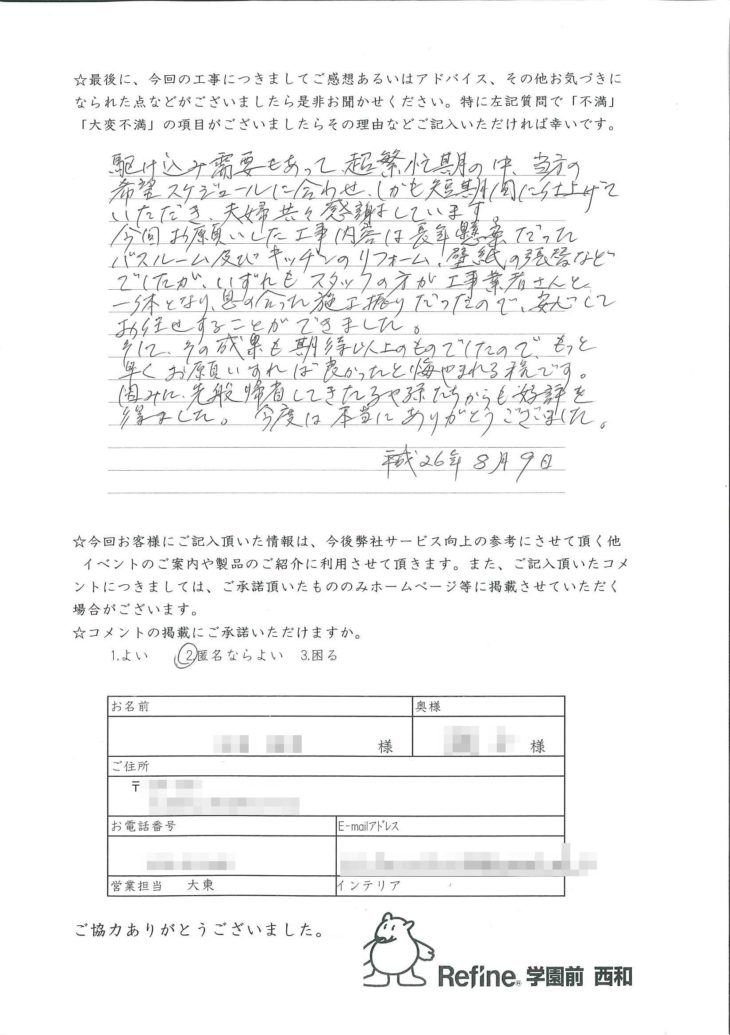 ☆最後に、今回の工事につきましてご感想あるいはアドバイス、その他お気づきに
なられた点などがございましたら是非お聞かせください。特に左記質問で「不満」
「大変不満」の項目がございましたらその理由などご記入いただければ幸いです。
駆け込み需要もあって、超繁忙期の中、当方の
希望スケジュールに合わせ、しかも短期間に仕上げて
いただき、夫婦共々感謝しています。
今回お願いした工事内容は長年懸案だった
バスルーム及びキッチンのリフォーム、壁紙の張替など
でしたが、いずれもスタッフの方が工事業者さんと
一体となり、息の合った施工振りだったので、安心して
お任せすることができました。
そして、その成果も期待以上のものでしたので、もっと
早くお願いすれば良かったと悔やまれる程です。
因みに、先般帰省してきた子や孫たちからも好評を
得ました。今度は本当にありがとうございました。
平成26年8月9日
☆今回お客様にご記入頂いた情報は、今後弊社サービス向上の参考にさせて頂く他
イベントのご案内や製品のご紹介に利用させて頂きます。また、ご記入頂いたコメ
ントにつきましては、ご承諾頂いたもののみホームページ等に掲載させていただく
場合がございます。
☆コメントの掲載にご承諾いただけますか。
1.よい 2.匿名ならよい 3.困る
お名前 奥様
様 様
ご住所
〒
お電話番号 E-mailアドレス
営業担当 大東 インテリア
ご協力ありがとうございました。
Refine® 学園前 西和